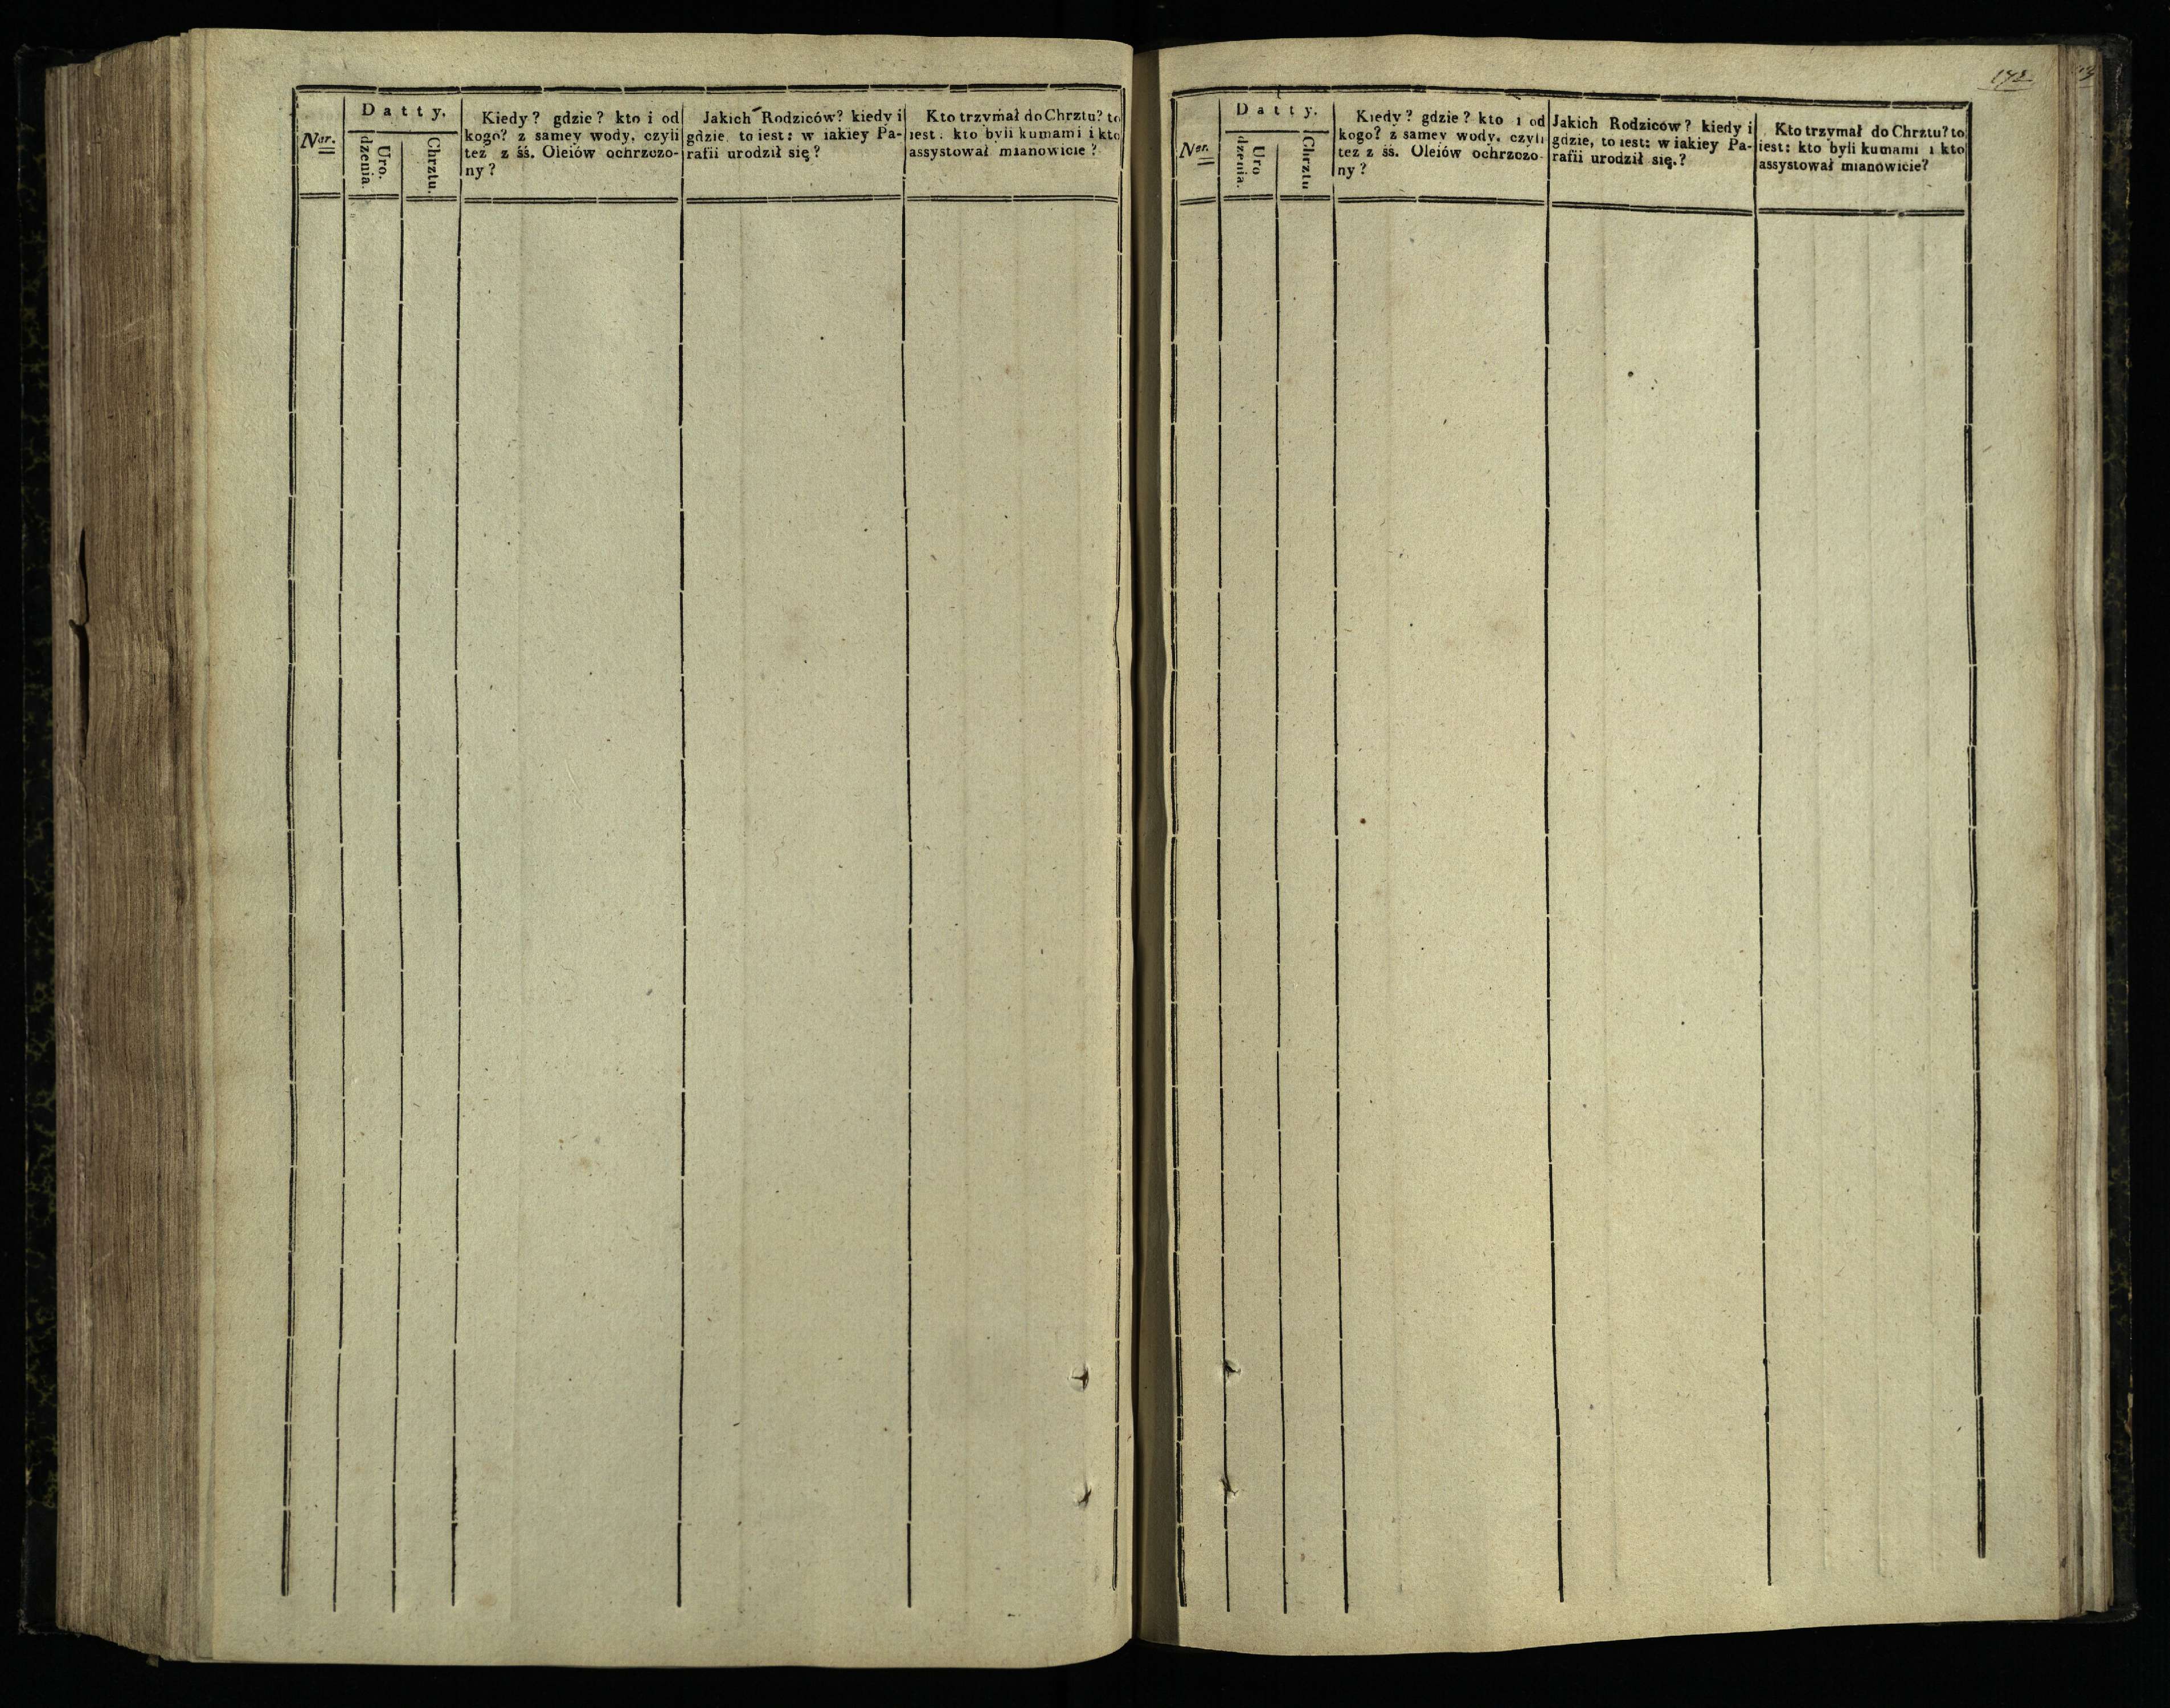 Ner.
Datty.
Uro.
dzenia.
Chrztu.
Kiedy? gdzie? kto i od
kogo? z samey wody, czyli
też z śś. Oleiów ochrzczo-
ny?
Jakich Rodziców? kiedy i
gdzie, to iest: w iakiey Pa-
rafii urodził się?
Kto trzymał do Chrztu? to
iest: kto byli kumami i kto
assystował mianowicie?
172
Ner.
Datty.
Uro
dzenia.
Chrztu
Kiedy? gdzie? kto i od
kogo? z samey wody, czyli
też z śś. Oleiów ochrzczo-
ny?
Jakich Rodziców? kiedy i
gdzie, to iest: w iakiey Pa-
rafii urodził się.?
Kto trzymał do Chrztu? to
iest: kto byli kumami i kto
assystował mianowicie?